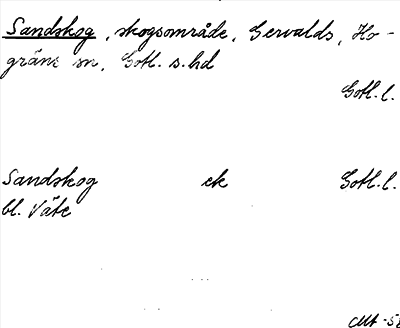 Sandskog, skogsområde, Gervalds, Ho-
gräns sn, Gotl. s. hd
Gotl. l.
Sandskog ek Gotl. l.
bl. Väte